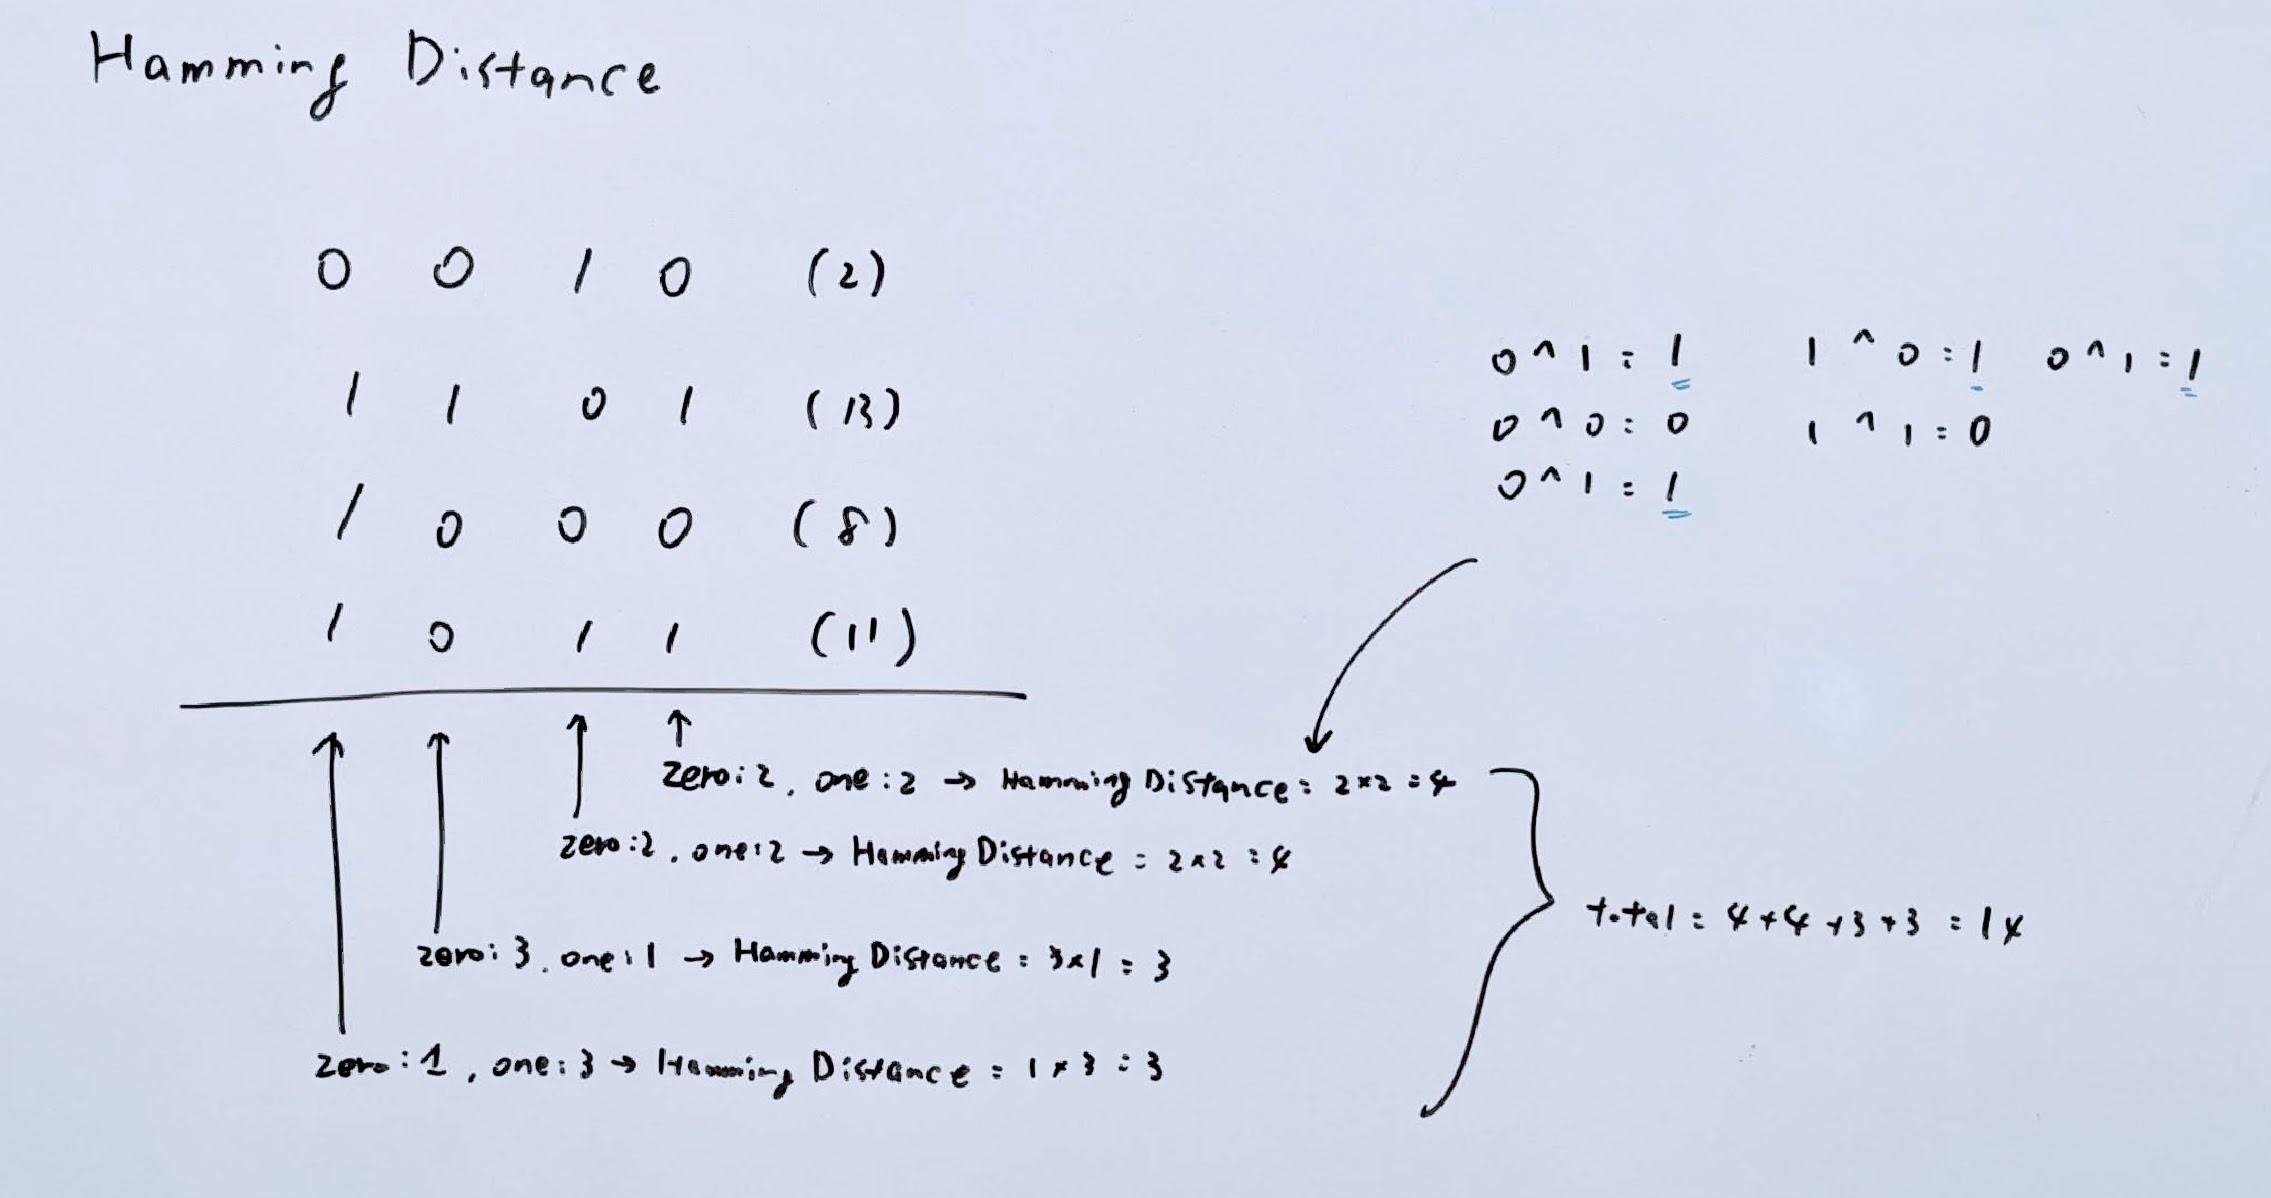 Hamming Distance
0 0 1 0 (2)
1 1 0 1 (13)
1 0 0 0 (8)
1 0 1 1 (11)
0 ^ 1 = 1 1 ^ 0 = 1 0 ^ 1 = 1
0 ^ 0 = 0 1 ^ 1 = 0
0 ^ 1 = 1
zero: 2, one: 2 → Hamming Distance = 2 × 2 = 4
zero: 2, one: 2 → Hamming Distance = 2 × 2 = 4
zero: 3, one: 1 → Hamming Distance = 3 × 1 = 3
zero: 1, one: 3 → Hamming Distance = 1 × 3 = 3
total = 4 + 4 + 3 + 3 = 14